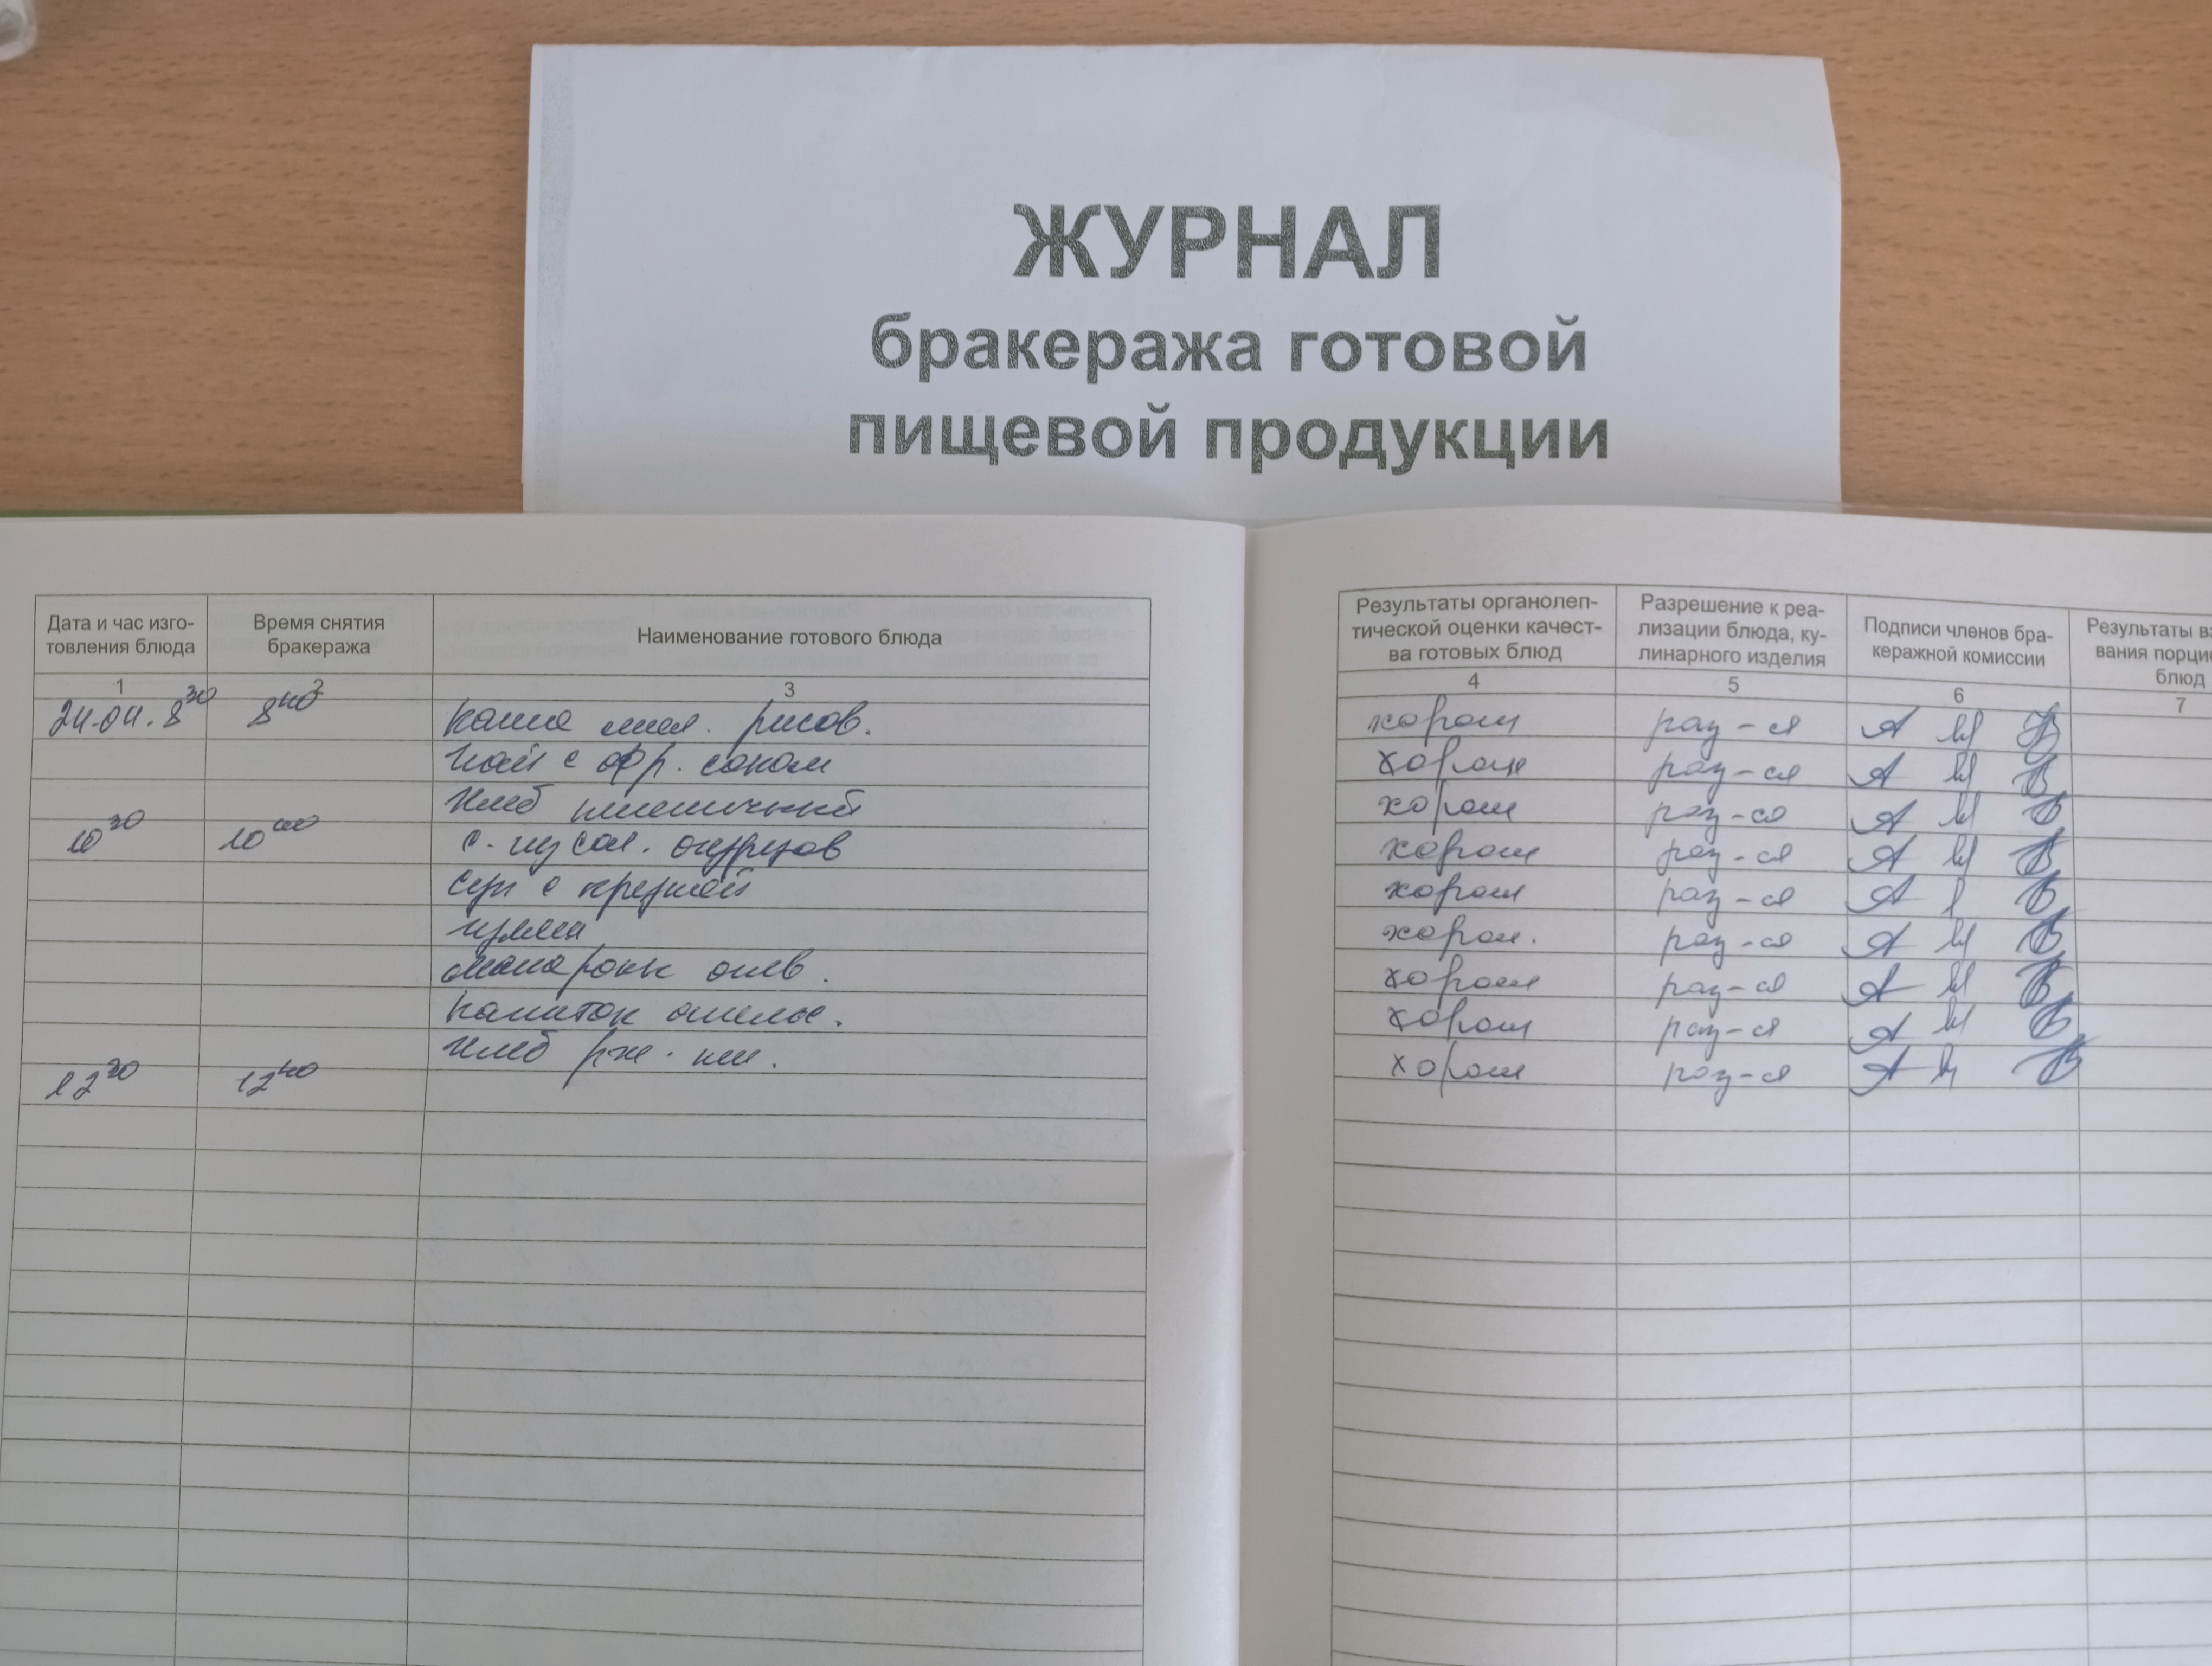 ЖУРНАЛ
бракеража готовой
пищевой продукции
Дата и час изго-
товления блюда
Время снятия
бракеража
Наименование готового блюда
Результаты органолеп-
тической оценки качест-
ва готовых блюд
Разрешение к реа-
лизации блюда, ку-
линарного изделия
Подписи членов бра-
керажной комиссии
Результаты вз
вания порци
блюд
1 2 3 4 5 6 7
24.04. 8 30 8 40 каша мол. рисов. хорош раз-ся
чай с фр. соком хорош раз-ся
хлеб пшеничный хорош раз-ся
10 30 10 40 с. из сол. огурцов хорош раз-ся
суп с хорош раз-ся
хорош. раз-ся
макароны отв. хорош раз-ся
напиток апельс. хорош раз-ся
хлеб рж. пш. хорош раз-ся
12 30 12 40